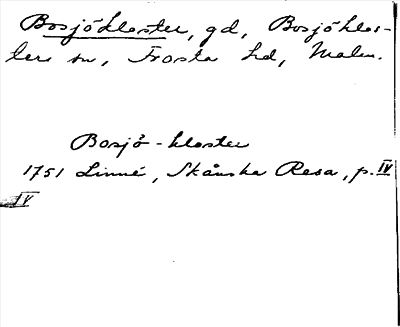 Bosjökloster, gd, Bosjöklos-
ters sn, Frosta hd, Malm.
Bosjö-kloster
1751 Linné, Skånska Resa, p. IV
IV